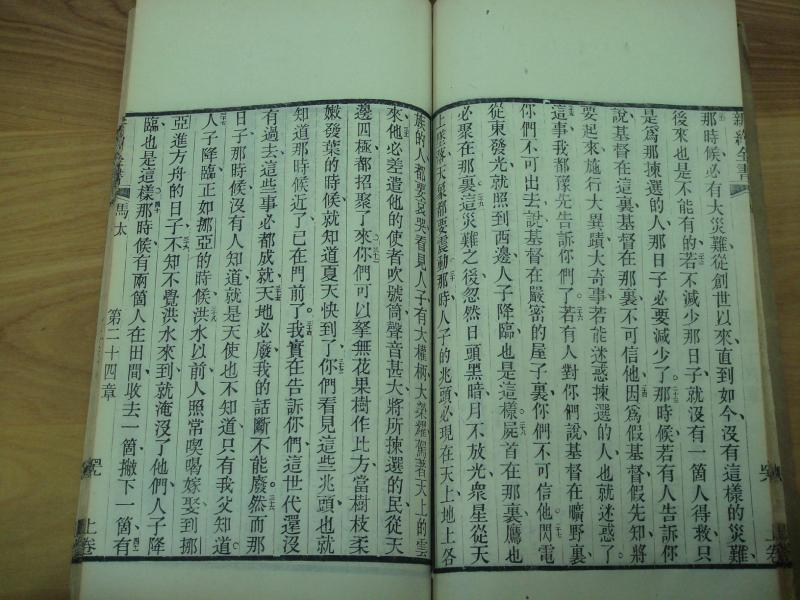 新約全書
那時候必有大災難、從創世以來、直到如今、沒有這樣的災難、
後來也是不能有的、若不減少那日子、就沒有一箇人得救、只
是爲那揀選的人、那日子必要減少了。那時候若有人告訴你
說、基督在這裏、基督在那裏、不可信他、因爲假基督假先知、將
要起來、施行大異蹟、大奇事、若能迷惑揀選的人、也就迷惑了。
這事我都豫先告訴你們了。若有人對你們說、基督在曠野裏、
你們不可出去、說、基督在嚴密的屋子裏、你們不可信他、閃電
從東發光、就照到西邊、人子降臨、也是這樣。屍首在那裏、鷹也
必聚在那裏。這災難之後、忽然日頭黑暗、月不放光、衆星從天
上墜落、天氣都要震動、那時人子的兆頭、必現在天上、地上各
族的人、都要哀哭、看見人子有大權柄大榮耀、駕著天上的雲
來、他必差遣他的使者、吹號筒聲音甚大、將所揀選的民、從天
邊四極都招聚了來。你們可以拏無花果樹作比方、當樹枝柔
嫩發葉的時候、就知道夏天快到了、你們看見這些兆頭、也就
知道那時候近了、已在門前了。我實在告訴你們、這世代還沒
有過去、這些事必都成就、天地必廢、我的話斷不能廢。然而那
日子、那時候、沒有人知道、就是天使也不知道、只有我父知道。
人子降臨、正如挪亞的時候、洪水以前、人照常喫喝嫁娶、到挪
亞進方舟的日子、不知不覺洪水來到、就淹沒了他們、人子降
臨、也是這樣。那時候有兩箇人在田間、收去一箇、撇下一箇、有
馬太
第二十四章
上卷